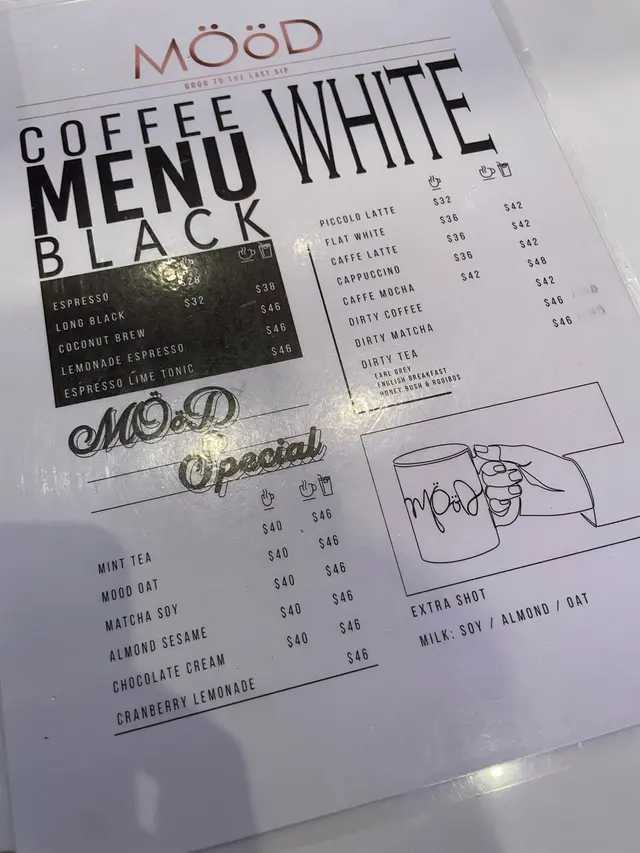 MÖöD
GOOD TO THE LAST SIP
COFFEE
MENU
BLACK
ESPRESSO $28
LONG BLACK $32 $38
COCONUT BREW $46
LEMONADE ESPRESSO $46
ESPRESSO LIME TONIC $46
WHITE
PICCOLO LATTE $32
FLAT WHITE $36 $42
CAFFE LATTE $36 $42
CAPPUCCINO $36 $42
CAFFE MOCHA $42 $48
DIRTY COFFEE $42
DIRTY MATCHA $46
DIRTY TEA $46
EARL GREY
ENGLISH BREAKFAST
HONEY BUSH & ROOIBOS
MÖöD
Special
MINT TEA $40 $46
MOOD OAT $40 $46
MATCHA SOY $40 $46
ALMOND SESAME $40 $46
CHOCOLATE CREAM $40 $46
CRANBERRY LEMONADE $46
MÖöD
EXTRA SHOT
MILK: SOY / ALMOND / OAT